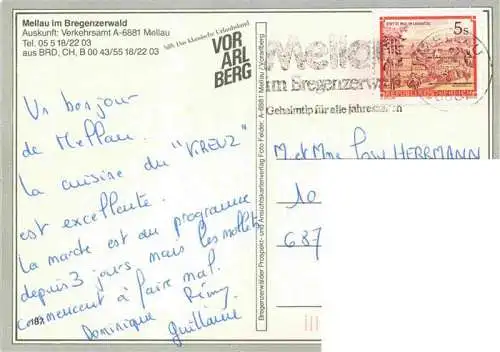 Mellau im Bregenzerwald
Auskunft: Verkehrsamt A-6881 Mellau
Tel. 05 5 18/22 03
aus BRD, CH, B 00 43/55 18/22 03
Das klassische Urlaubsland
VOR
ARL
BERG
Un bonjour
de Mellau.
La cuisine du "KREUZ"
est excellente.
La marche est au programme
depuis 3 jours mais les mollets
commencent à faire mal.
Dominique Rémy
Guillaume
182
Bregenzerwälder Prospekt- und Ansichtskartenverlag Foto Felder, A-6881 Mellau / Vorarlberg
Mellau
im Bregenzerwald
Geheimtip für alle Jahreszeiten
5s
REPUBLIK ÖSTERREICH
M et Mme HERRMANN
10
687